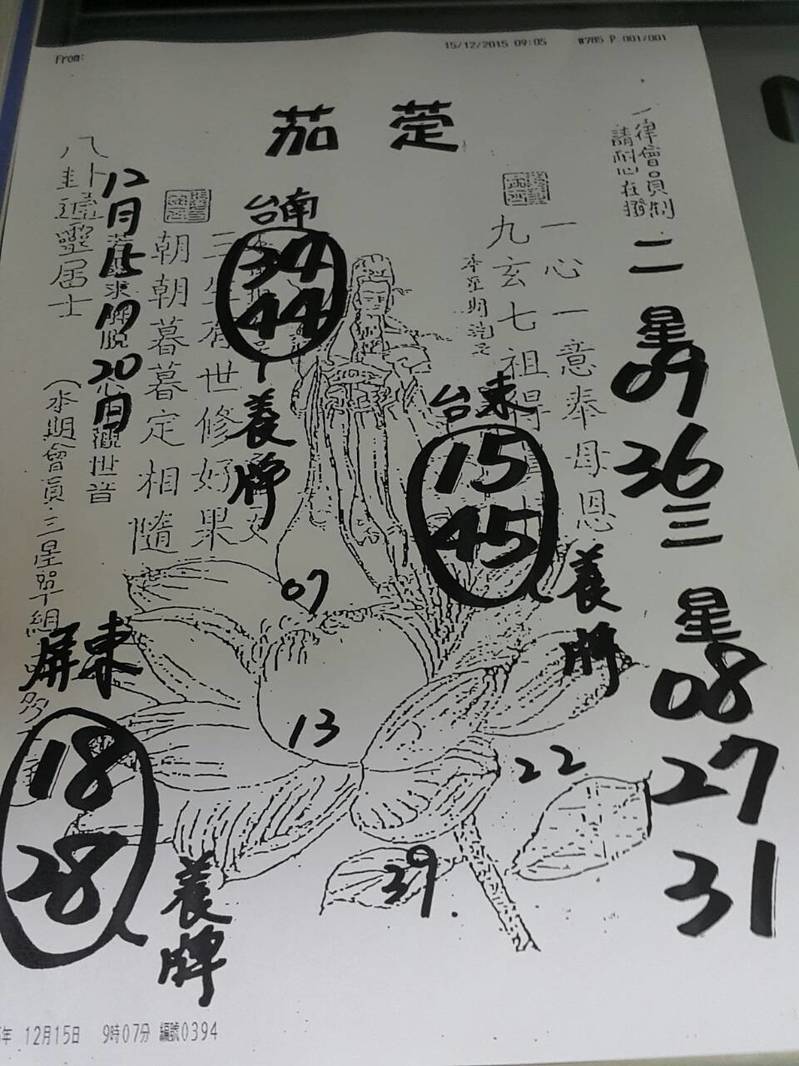 From:
15/12/2015 09:05
#785 P 001/001
茄萣
一律會員制
請耐心在撥
二星
09
36
三星
08
27
31
一心一意奉母恩
九玄七祖得
台南
34
44
養牌
台東
15
45
養牌
三生有世修好果
朝朝暮暮定相隨
12月15 17 20日
觀世音
八卦通靈居士
(本期會員三星單組
屏東
18
28
養牌
07
13
22
39
年 12月15日 9時07分 編號0394